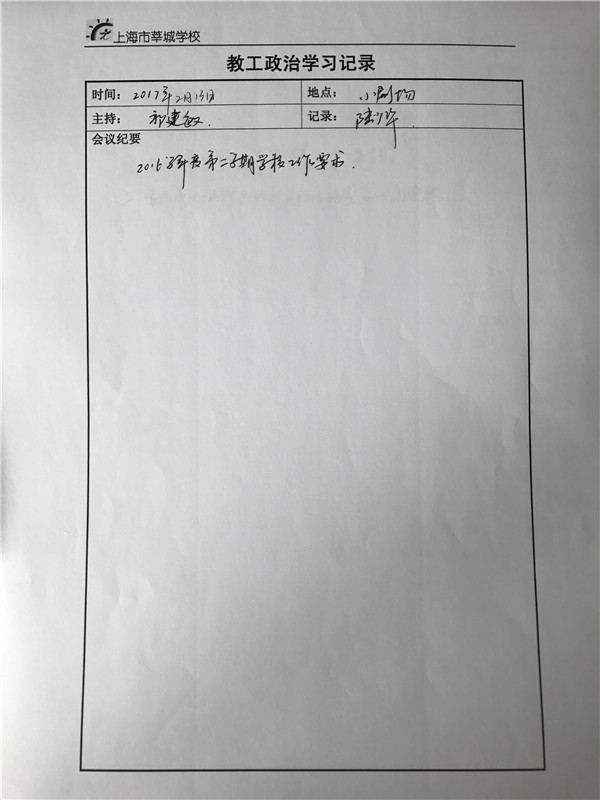 上海市莘城学校
教工政治学习记录
时间： 2017年2月13日 地点： 小剧场
主持： 祁建敏. 记录： 陆少华.
会议纪要
2016学年度第二学期学校工作要求.